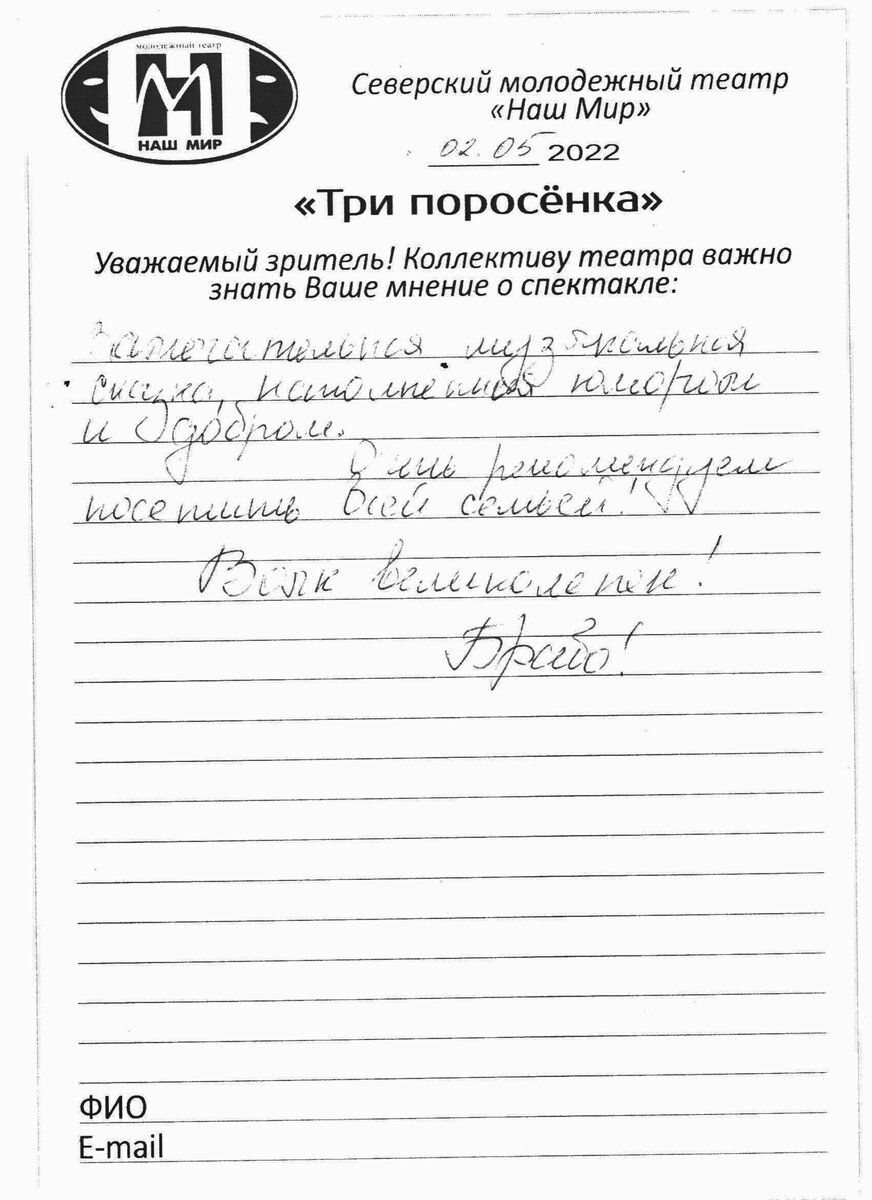 молодежный театр
НАШ МИР
Северский молодежный театр
«Наш Мир»
02.05 2022
«Три поросёнка»
Уважаемый зритель! Коллективу театра важно
знать Ваше мнение о спектакле:
Замечательная музыкальная
сказка, наполненная юмором
и добром.
Очень рекомендуем
посетить всей семьей!
Волк великолепен!
Браво!
ФИО
E-mail